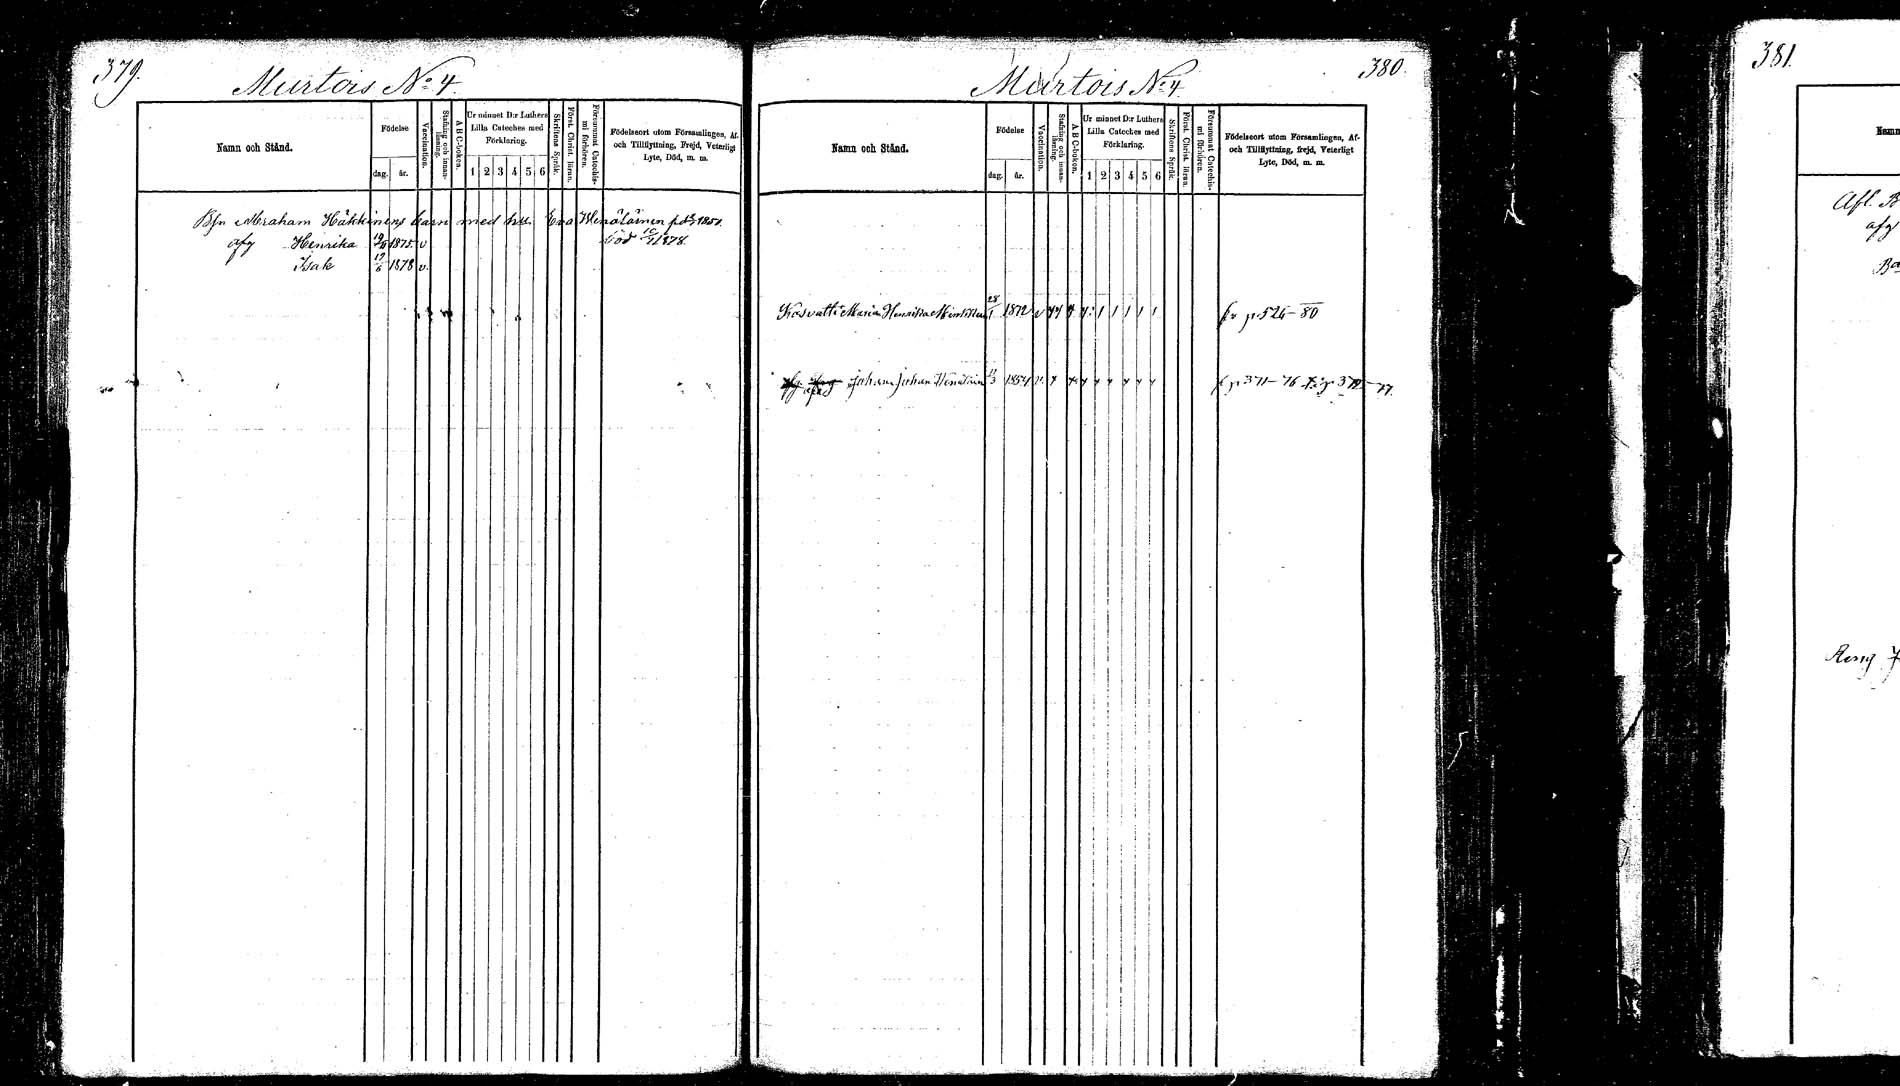 379.
Murtois No 4.
Namn och Stånd.
Födelse
dag.
år.
Vaccination.
Stafning och innan-
läsning.
A B C-boken.
Ur minnet D:r Luthers
Lilla Cateches med
Förklaring.
1 2 3 4 5 6
Skriftens Språk.
Först. Christ. läran.
Försummat Catechis-
mi förhören.
Födelseort utom Församlingen, Af-
och Tillflyttning, Frejd, Veterligt
Lyte, Död, m. m.
Abraham Häkkinens barn med hu Eva Wenäläinen
afg Henrika 1875 v död 1878.
Isak 19/6 1878 v.
380.
Murtois No 4
Namn och Stånd.
Födelse
dag.
år.
Vaccination.
Stafning och innan-
läsning.
A B C-boken.
Ur minnet D:r Luthers
Lilla Cateches med
Förklaring.
1 2 3 4 5 6
Skriftens Språk.
Först. Christ. läran.
Försummat Catechis-
mi förhören.
Födelseort utom Församlingen, Af-
och Tillflyttning, frejd, Veterligt
Lyte, Död, m. m.
Maria Henrika 28/1 1872 v 1 1 1 1 1 fr p. 526-80
Johan Johan 1854 v. p 371-76
381.
Afl. B
afg